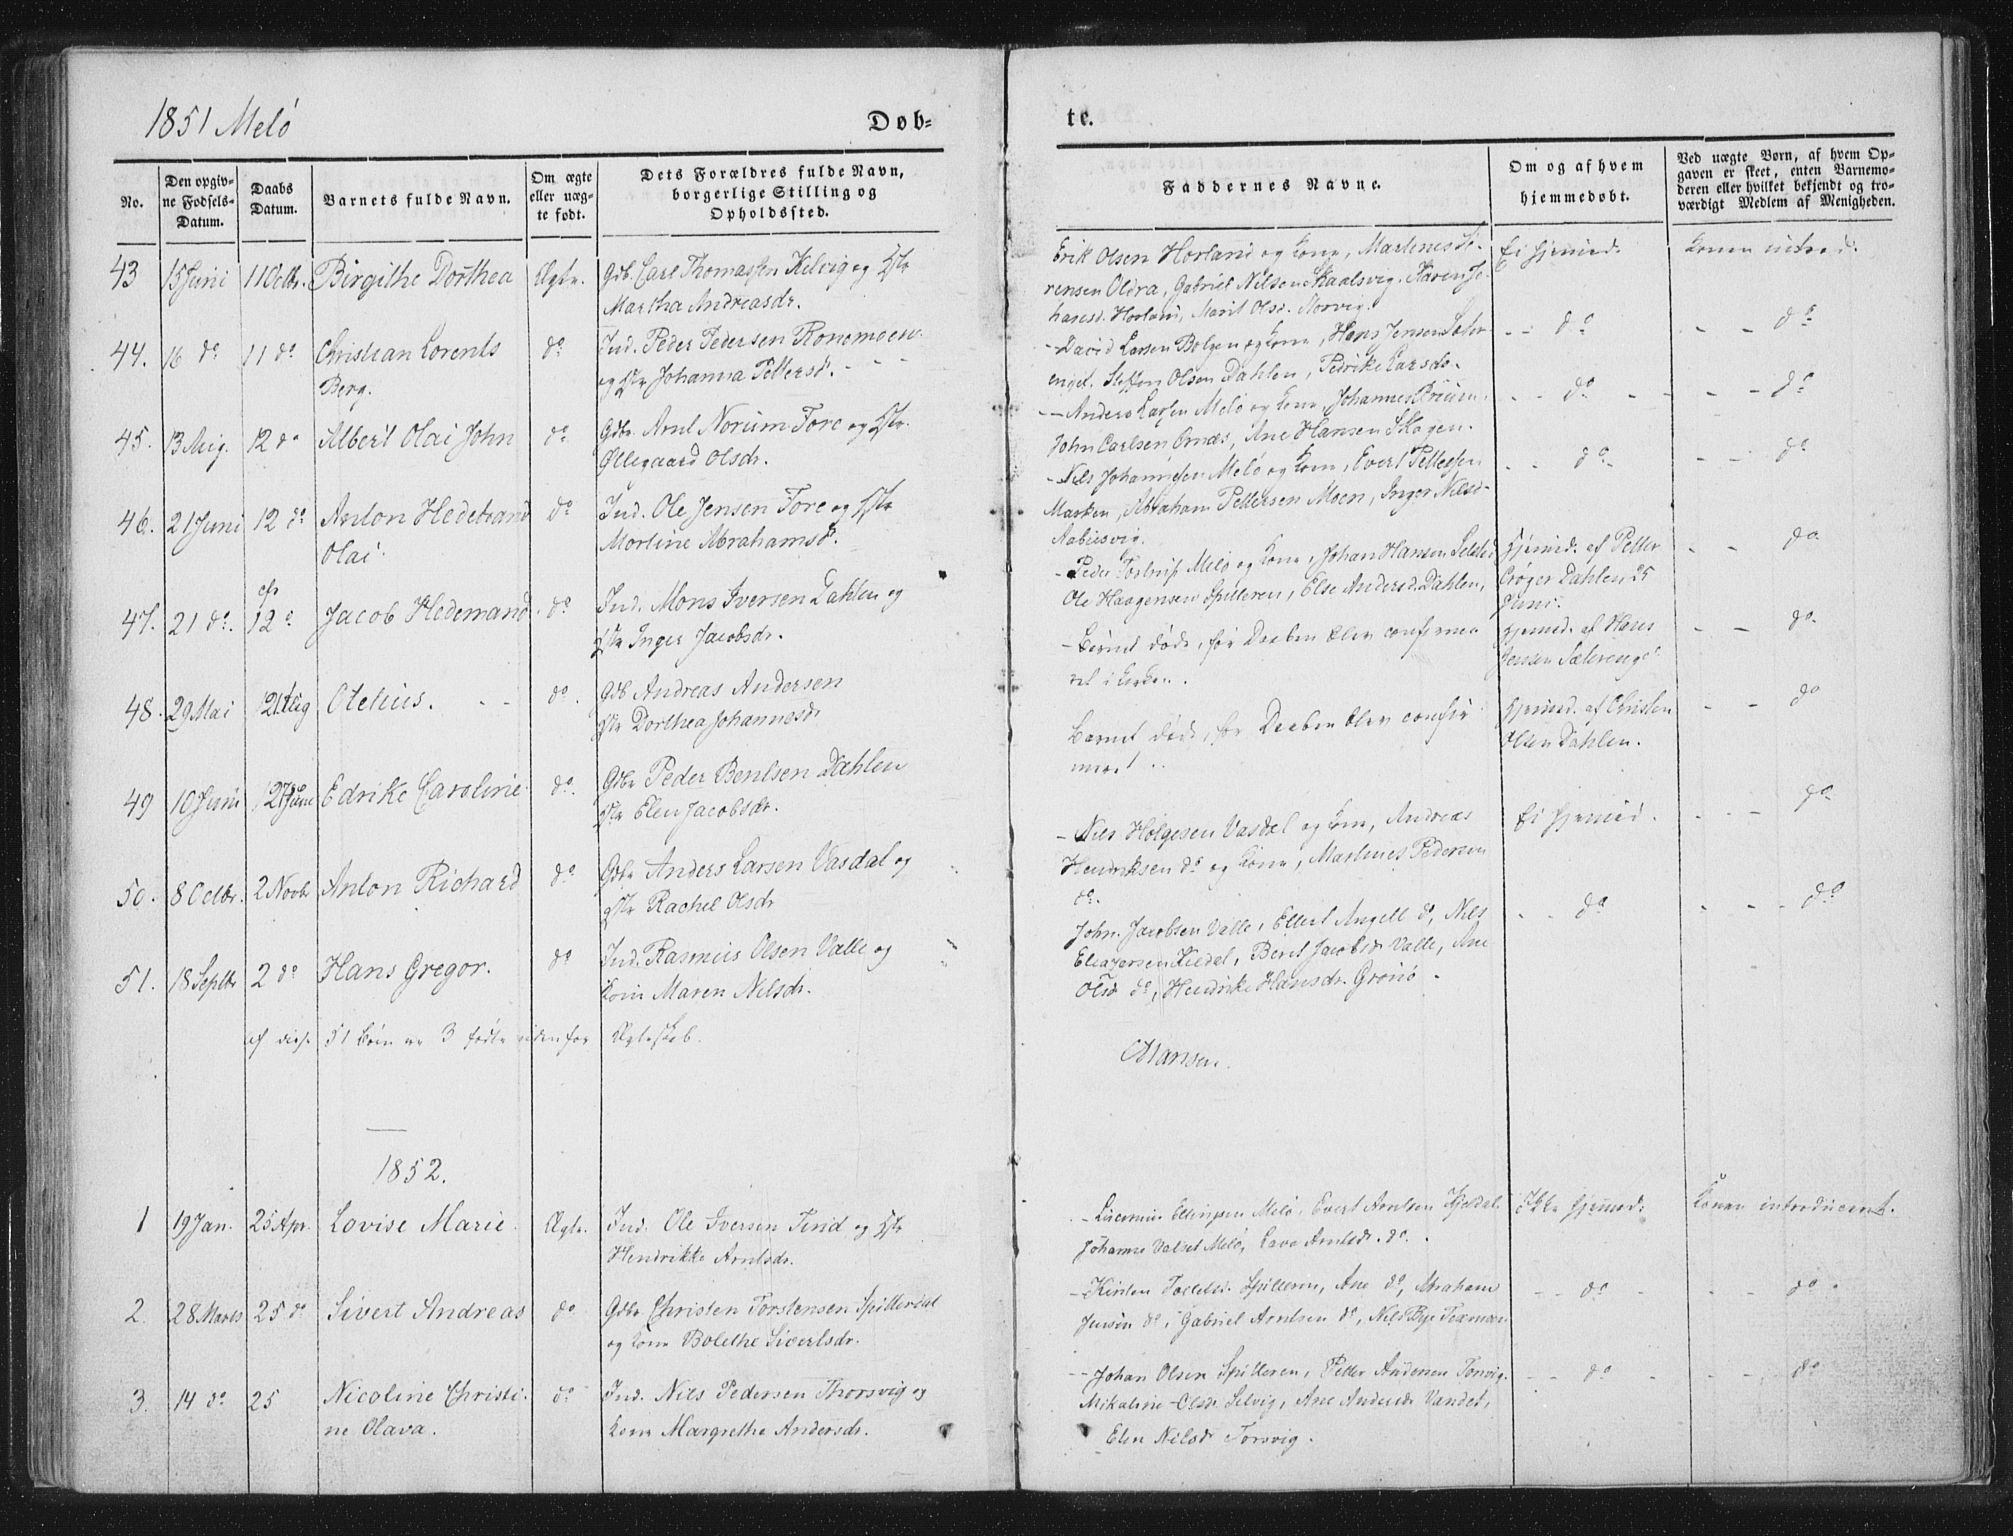 1851 Melö
Døb=
te.
No.
Den opgiv=
ne Fødsels=
Datum.
Daabs
Datum.
Barnets fulde Navn.
Om ægte
eller uæg=
te født.
Dets Forældres fulde Navn,
borgerlige Stilling og
Opholdssted.
Faddernes Navne.
Om og af hvem
hjemmedøbt.
Ved uægte Børn, af hvem Op=
gaven er skeet, enten Barnemo=
deren eller hvilket bekjendt og tro=
værdigt Medlem af Menigheden.
43 15 Juni 11 Octbr. Birgithe Dorthea Ægte. Gdb. Carl Thomassen Kilvig og Hstr
Martha Andreasdr.
Erik Olsen Horland og Kone, Martines Sö-
rensen Oldra, Gabriel Nilsen Skaalsvig, Karen Jo-
hanesd. Horland, Marit Olsd. Norvig.
Ei hjemmed.
Konen introd.
44. 16 do 11 do Christian Lorents do Ind. Peder Pedersen Ronemoen
Berg. og Hstr Johanna Pettersd.
David Larsen Bolgen og Kone, Hans Jensen Sæter
enget, Steffen Olsen Dahlen, Pedrike Larsdr.
do do
45. 13 Aug. 12 do Albert Olai John do Gdbr. Arnt Norum Fore og Hstr.
Øllegaard Olsdr.
Anders Larsen Melö og Kone, Johannes Bruun,
John Carlsen Ornæs, Ane Hansen Skogen.
do do
46. 21 Juni 12 do Anton Hedebrand do Ind. Ole Jensen Fore og Hstr
Olai Mortine Abrahamsd.
Nils Johannesen Melö og Kone, Evert Pettersen
Marken, Abraham Pettersen Moen, Inger Nilsd
Aabusvig.
do do
47. 21 do. 12 do Jacob Hedemand do Ind. Mons Iversen Dahlen og
Hstr Inger Jacobsdr.
Peder Tostrup Melö og Kone, Johan Hansen Selstad
Ole Haagensen Spilleren, Else Andersd. Dahlen,
Hjemmd. af Petter
Crøger Dahlen, 25
Juni.
do
48. 29 Mai 12 Aug Otelius. do. Gdb Andreas Andersen
Hstr Dorthea Johannesdr
Barnet døde, før Daaben blev confirme
ret i Kirken.
Hjemmd. af Hans
Jensen Sæterenget
do
49 10 Juni Edrike Caroline do. Gdbr Peder Bentsen Dahlen
Hstr Elen Jacobsdr.
Barnet døde, før Daaben blev confir
meret.
Hjemmd. af Christen
Olsen Dahlen.
do
50. 8 Octbr. 2 Novbr Anton Richard do Gdbr Anders Larsen Vasdal og
Hstr Rachel Olsdr
Nils Holgesen Vasdal og Kone, Andreas
Hendriksen do og Kone, Martines Pedersen
do.
Ei hjemmd.
do
51. 18 Septbr 2 do Hans Gregor. do Ind. Rasmus Olsen Valle og
Kone Maren Nilsdr.
John Jacobsen Valle, Ellert Angell do, Nils
Eleazersen Kildal, Beret Jacobsdr Valle, Ane
Olsd do, Hendrike Hansdr. Grönö.
do do
af disse 51 Børn er 3 fødte udenfor Ægteskab.
CMansen.
1852.
1 19 Jan. 25 Apr. Lovise Marie. Ægte. Ind. Ole Iversen Tind og Hstr
Hendrikke Arntsdr.
Ellingsen Melö, Evert Arntsen Kjeldal.
Johanna Valset Melö, Lava Arntsd. do.
Ikke hjemmd.
Konen introduceret.
2. 28 Marts 25 do Sivert Andreas do Gdbr Christen Torstensen Spilderdal
og Kone Bolethe Sivertsdr.
Kirsten Spilleren, Ane do, Abraham
Jensen do, Gabriel Arntsen do, Nils Bye
do do
3. 14 do 25 Nicoline Christi- do Ind. Nils Pedersen Thorsvig og
ne Olava. Kone Margrethe Andersdr.
Johan Olsen Spilleren, Petter Andersen Torsvig.
Mikaline Olsdr Selvig, Ane Andersdr Vandet,
Elen Nilsdr Torsvig.
do do